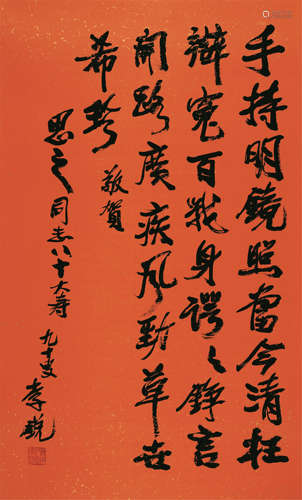 手持明镜照当今清狂
辩冤百战身谔谔铮言
开路广疾风劲草世
希珍
敬贺
思之同志八十大寿
九十叟李锐